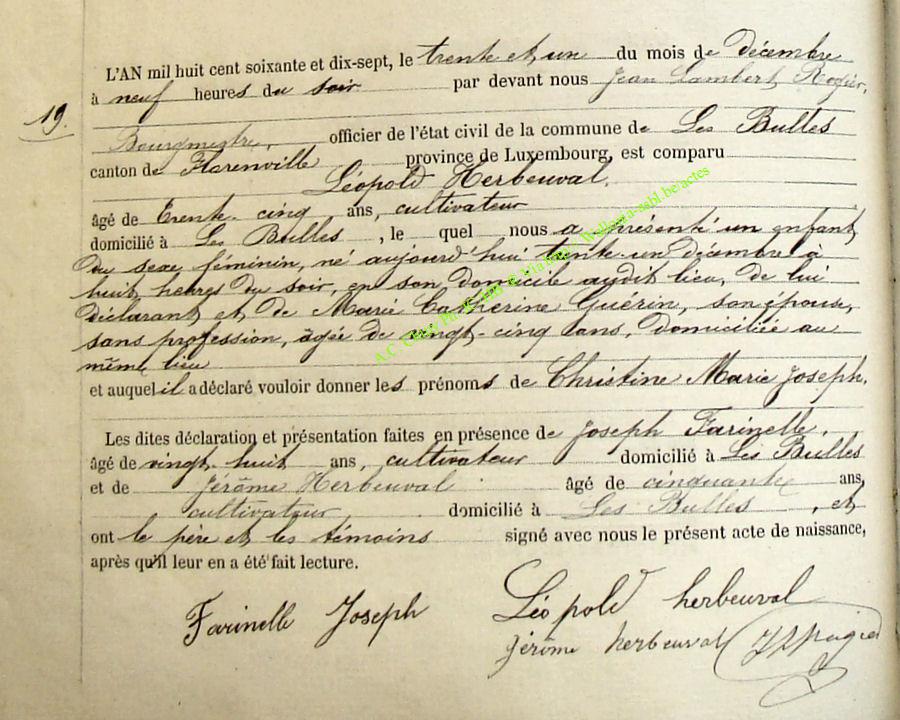 L'AN mil huit cent soixante et dix-sept, le trente et un du mois de décembre
à neuf heures du soir par devant nous Jean Lambert
19.
Bourgmestre, officier de l'état civil de la commune de Les Bulles
canton de Florenville province de Luxembourg, est comparu
Léopold Herbeuval,
âgé de trente-cinq ans, cultivateur
domicilié à Les Bulles, le quel nous a présenté un enfant
du sexe féminin, né aujourd'hui trente-un décembre à
huit heures du soir, en son domicile audit lieu, de lui
déclarant et de Marie Catherine Guérin, son épouse,
sans profession, âgée de vingt-cinq ans, domiciliée au
même lieu
et auquel il a déclaré vouloir donner les prénoms de Christine Marie Joseph.
Les dites déclaration et présentation faites en présence de Joseph Farinelle,
âgé de vingt-huit ans, cultivateur domicilié à Les Bulles
et de Jérôme Herbeuval âgé de cinquante ans,
cultivateur, domicilié à Les Bulles, et
ont le père et les témoins signé avec nous le présent acte de naissance,
après qu'il leur en a été fait lecture.
Farinelle Joseph Léopold herbeuval
Jérôme herbeuval